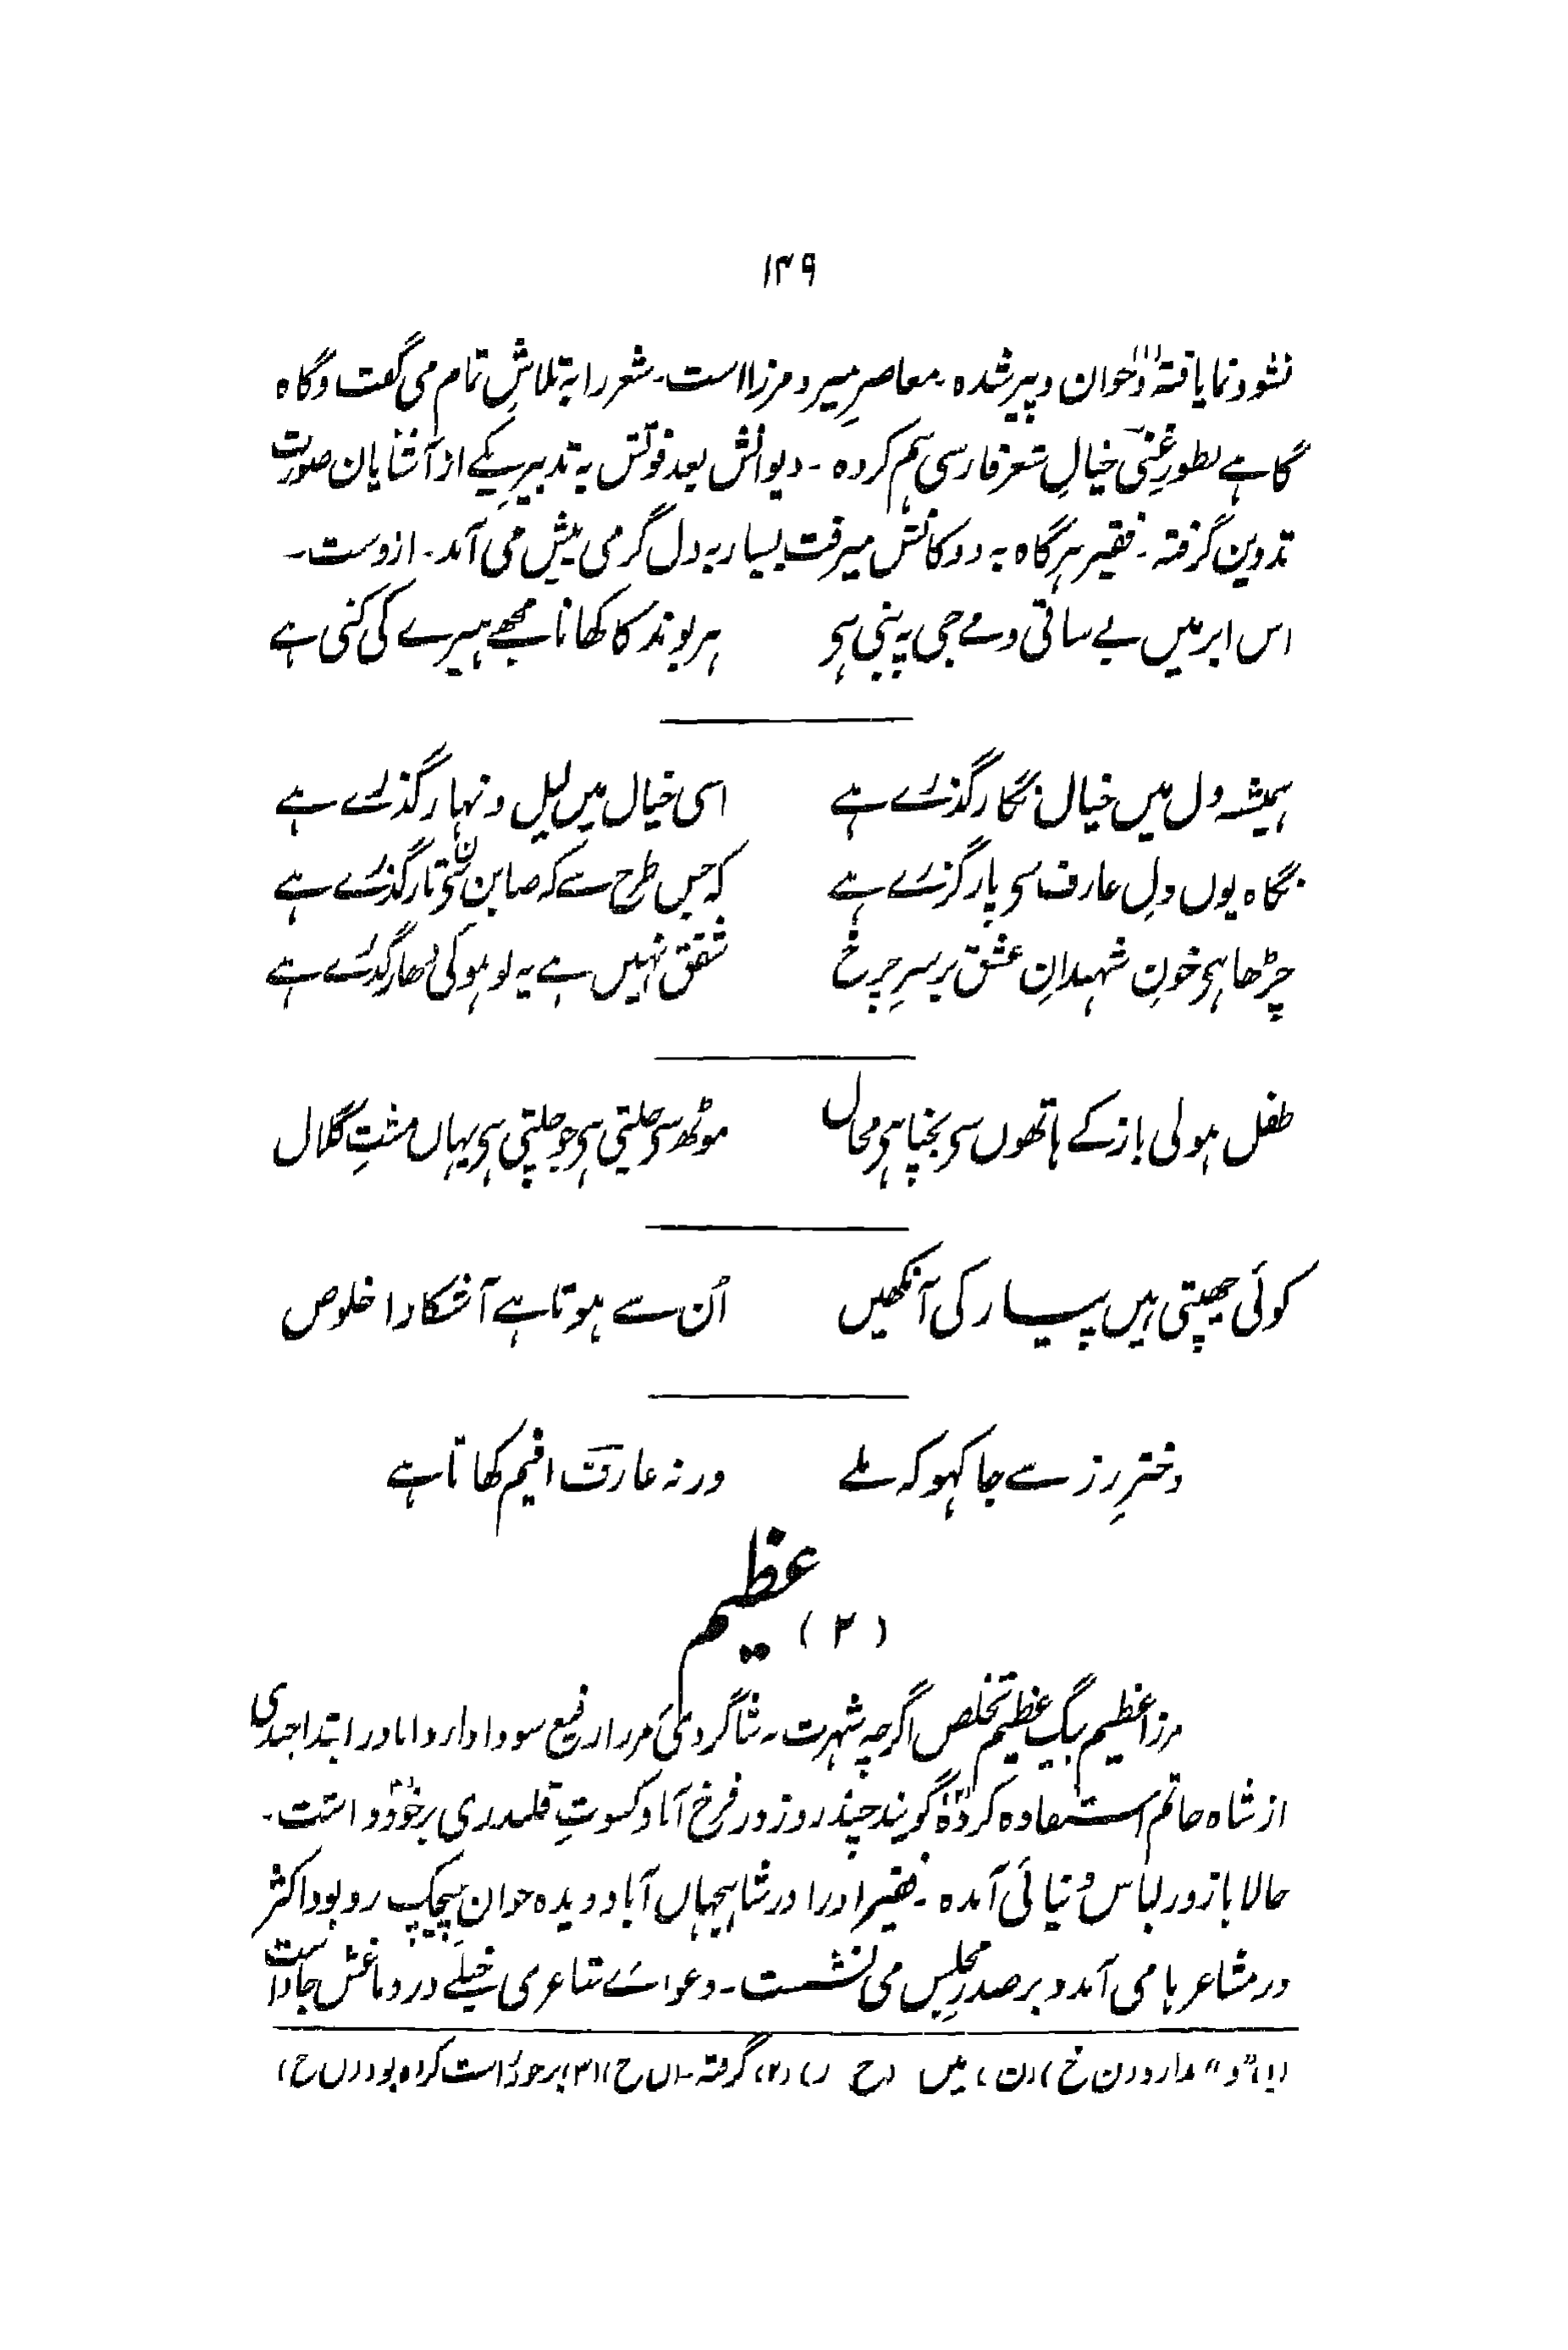 ۱۴۹
نشو و نما یافتہ (۱) و جوان و پیر شدہ۔ معاصرِ میر و مرزا است۔ شعر را بہ تلاشِ تمام می گفت و گاہ
گاہے بطورِ غنی خیالِ شعر فارسی ہم کردہ۔ دیوانش بعد فوتش بہ تدبیرِ یکے از آشنایان صورت
تدوین گرفتہ۔ فقیر ہر گاہ بہ دوکانش میرفت بسیار بہ دل گرمی پیش می آمد۔ ازوست۔
اس ابر میں بے ساقی و مے جی پہ بنی ہی ہر بوند کا کھانا مجھے ہیرے کی کنی ہے
ہمیشہ دل میں خیال نگار گذرے ہے اسی خیال میں لیل و نہار گذرے ہے
نگاہ یوں دلِ عارف سی پار گزرے ہے کہ جس طرح سے کہ صابن سی تار گذرے ہے
چڑھا ہی خونِ شہیدانِ عشق بر سرِ چرخ شفق نہیں ہے یہ لوہو کی دھار گذرے ہے
طفل ہولی باز کے ہاتھوں سی بچنا ہی محال موٹھ سی چلتی ہی جو چلتی ہی یہاں مشتِ گلال
کوئی چھپتی ہیں پیار کی آنکھیں اُن سے ہوتا ہے آشکارا خلوص
دخترِ رز سے جا کہو کہ ملے ورنہ عارف افیم کھاتا ہے
عظیم
(۲)
مرزا عظیم بیگ عظیم تخلص اگرچہ شہرت۔ شاگردیِ مرزا رفیع سودا دارد اما در ابتدا چندی
از شاہ حاتم استفادہ کردہ (۲) گویند چند روز در فرخ آباد کسوتِ قلندری بر خود (۳) داشت۔
حالا باز در لباس دُنیائی آمدہ۔ فقیر او را در شاہجہاں آباد دیدہ جوان بیچک رو بود اکثر
در مشاعرہا می آمد و بر صدرِ مجلس می نشست۔ دعواے شاعری خیلے در دماغش جا داشت
(۱) "و" ندارد (ن خ) (ن) میں (ح ر) (۲) گرفتہ۔ (ن خ) (۳) بر خود راست کردہ بود (ن خ)